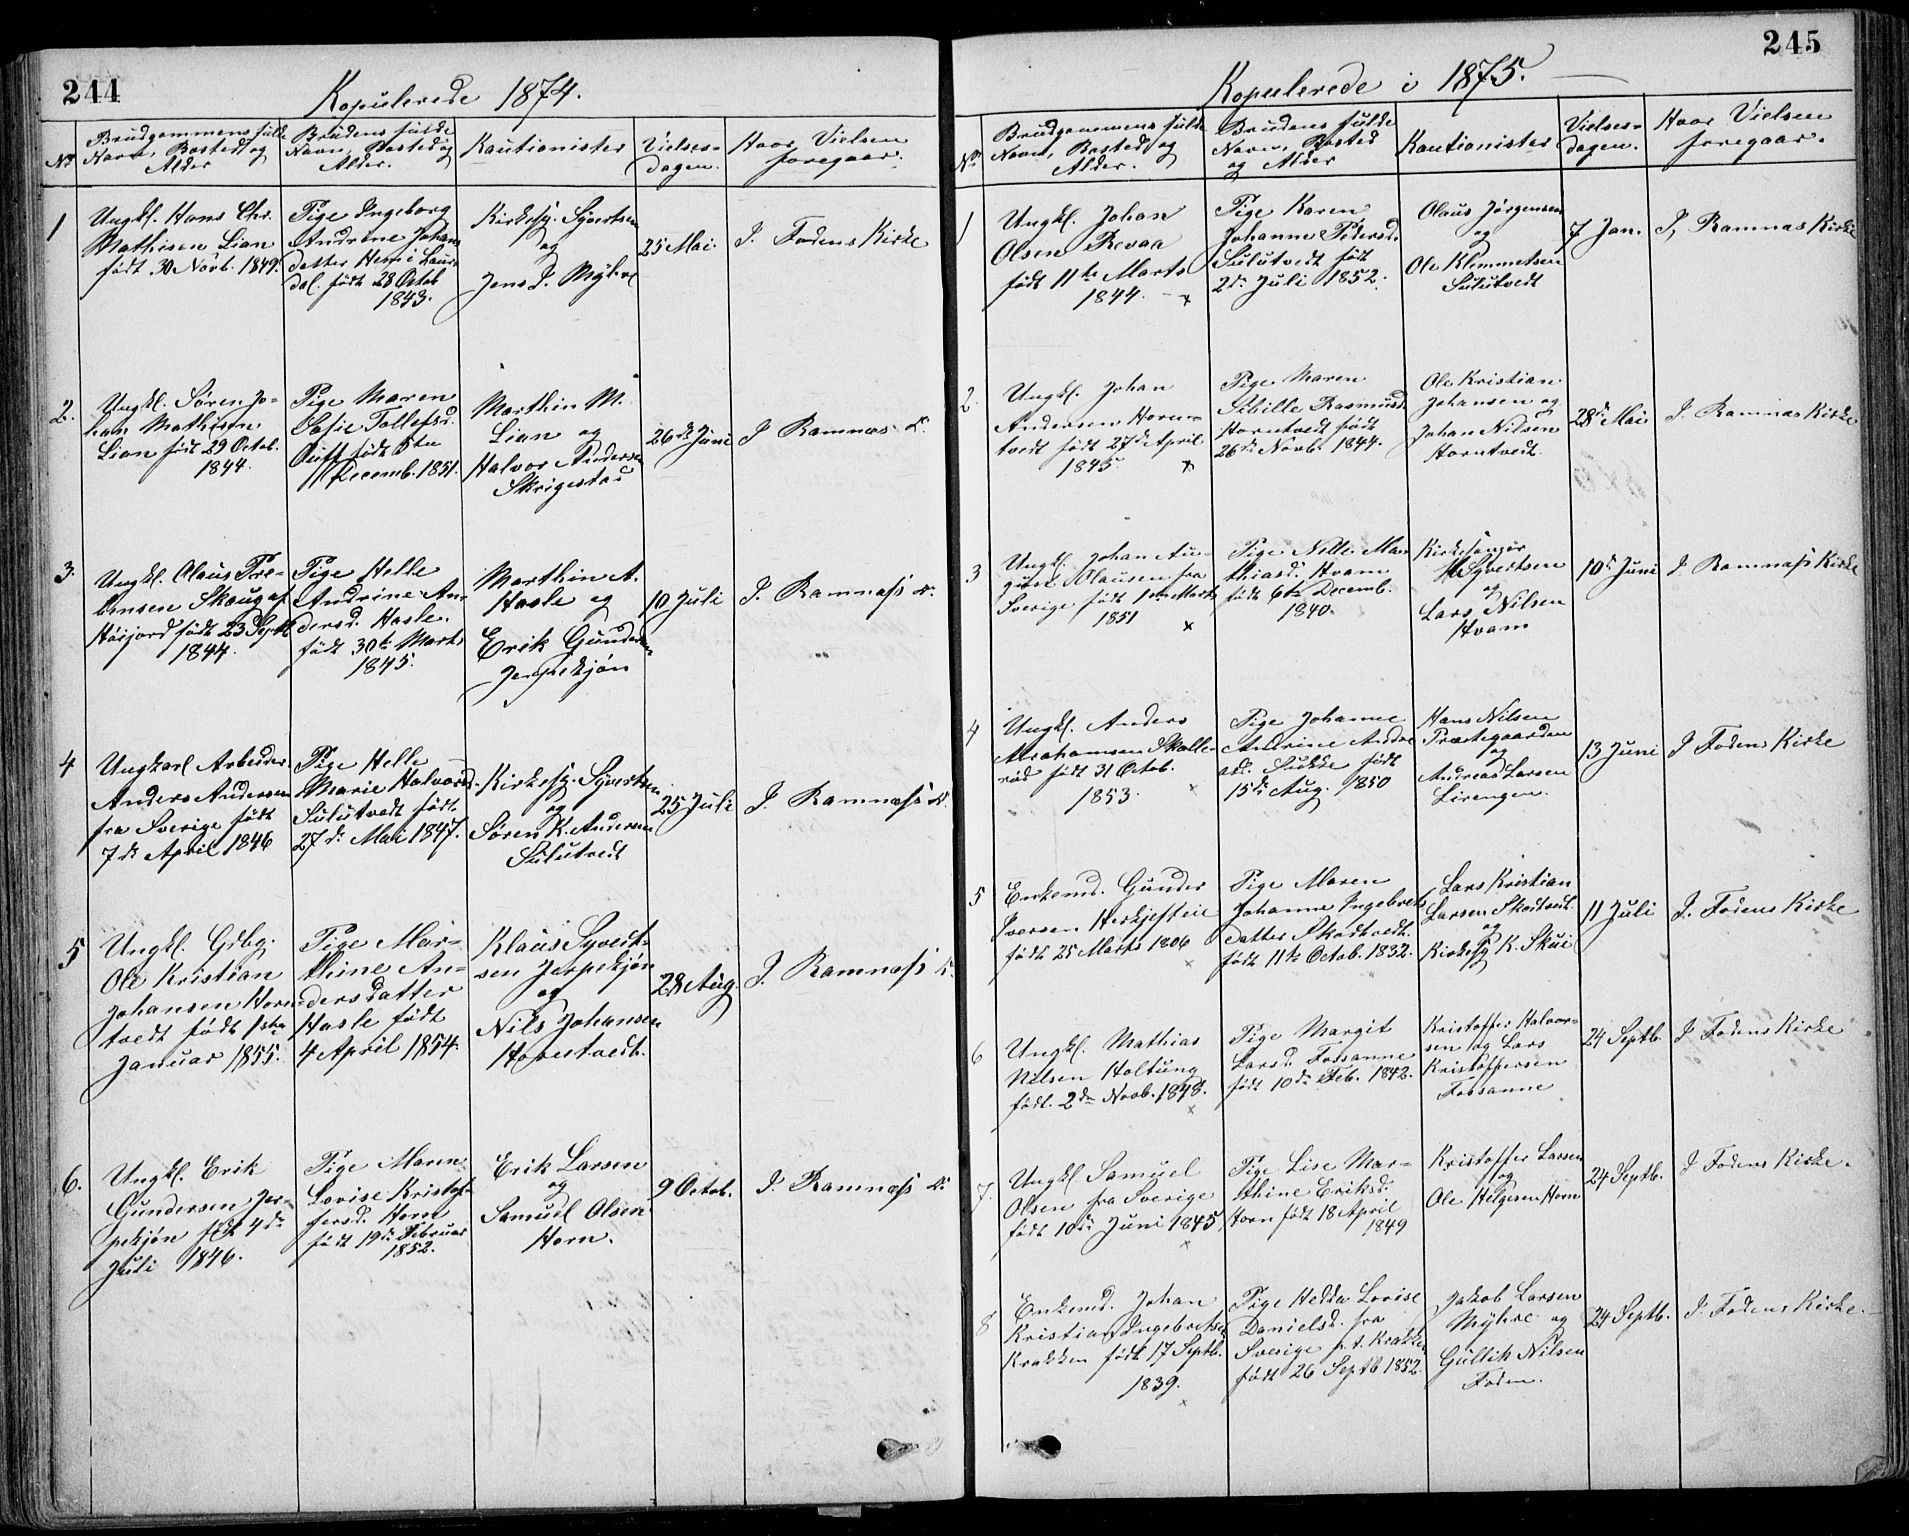 244
Kopulerede 1874.
No
Brudgommens fulde
Navn, Bosted og
Alder
Brudens fulde
Navn, Bosted og
Alder.
Kautionister
Vielses-
dagen.
Hvor Vielsen
foregaar.
1
Ungkl. Hans Chr.
Mathisen Lian
født 30 Novb. 1849.
Pige Ingeborg
Andrine Johans
datter Hem i Laur
dal. født 28 Octob
1843.
Kirkesg. Syvertsen
og
Jens J. Myhre
25 Mai.
I. Fodens Kirke
2.
Ungkl. Søren Jo-
han Mathisen
Lian født 29 Octob.
1844.
Pige Maren
Tollefsd.
født 5te
Decemb. 1851.
Marthin M.
Lian og
Halvor Andersen
Skrigestad
26de Juni
I Ramnæs K.
3.
Ungkl. Olaus Pre-
bensen Skaug af
Høijord født 23 Septb
1844.
Pige Helle
Andrine An-
dersd. Hasle.
født 30te Marts
1845.
Marthin A.
Hasle og
Erik Gundersen
Jerpekjøn
10 Juli
I. Ramnæss K.
4
Ungkarl Arbeider
Anders Andersen
fra Sverige født
7de April 1846
Pige Helle
Marie Halvorsd.
Sulutvedt født
27de Mai 1847.
Kirkesg. Syvertsen
og
Søren K. Andersen
Sulutvedt
25 Juli
I. Ramnæss K.
5
Ungkl. Gdbg.
Ole Kristian
Johansen Horn-
tvedt født 1ste
Januar 1855.
Pige Mar-
thine An-
dersdatter
Hasle født
4 April 1854.
Klaus Syvert-
sen Jerpekjøn
og
Nils Johansen
Hovestvedt.
28 Aug.
I. Ramnæss K.
6.
Ungkl. Erik
Gundersen Jer-
pekjøn født 4de
Juli 1846.
Pige Maren
Lovise Kristof-
fersd. Horn
født 19de Februar
1852.
Erik Larsen
og
Samuel Olsen
Horn.
9 Octob.
I. Ramnæss K.
245
Kopulerede i 1875.
No
Brudgommens fulde
Navn, Bosted og
Alder.
Brudens fulde
Navn, Bosted
og Alder
Kautionister
Vielses-
dagen.
Hvor Vielsen
foregaar.
1
Ungkl. Johan
Olsen Revaa
født 11te Marts
1844.
Pige Karen
Johanne Pedersd.
Sulutvedt født
2de Juli 1852.
Olaus Jørgensen
og
Ole Klemmetsen
Sulutvedt
7 Jan.
I, Ramnæs Kirke
2.
Ungkl. Johan
Andersen Horn-
tvedt født 27de April
1845.
Pige Maren
Sibille Rasmusd.
Horntvedt født
26de Novb. 1844.
Ole Kristian
Johansen og
Johan Nilsen
Horntvedt.
28de Mai
I Ramnæs Kirke
3
Ungkl. Johan Au-
gust Olausen fra
Sverige født 1ste Marts
1851
Pige Nelle Ma-
thiasd. Hvam
født 6te Decemb.
1840.
Kirkesanger
H Syvertsen
og
Lars Nilsen
Hvam
10de Juni
I. Ramnæss Kirke
4
Ungkl. Anders
Abrahamsen Skolle-
rød født 31 Octob.
1853.
Pige Johanne
Andrine Andre
asd. Sukke født
15de Aug. 1850
Hans Nilsen
Præstegaarden
og
Andreas Larsen
Lirengen.
13 Juni
I Fodens Kirke
5
Enkemd. Gunder
Iversen Herkjestein
født 25 Marts 1806
Pige Maren
Johanne Ingebrets
datter Skodtvedt.
født 11te Octob. 1832.
Lars Kristian
Larsen Skodtvedt.
og
Kirkesg K. Skui
11 Juli
I. Fodens Kirke
6
Ungkl. Mathias
Nilsen Holtung
født. 2den Novb. 1848.
Pige Margit
Larsd. Fossanne
født 10de Feb. 1842.
Kristoffer Halvor-
sen og Lars
Kristoffersen
Fossanne
24 Septb.
I Fodens Kirke
7.
Ungkl Samuel
Olsen fra Sverige
født 10de Juni 1845.
Pige Lise Mar-
thine Eriksd.
Horn født 18 April
1849
Kristoffer Larsen
og
Ole Helgesen Horn
24 Septb.
I Fodens Kirke.
8
Enkemd. Johan
Kristian Ingebretsen
Krakken født 17 Septb.
1839.
Pige Hedda Lovise
Danielsd. fra
Sverige p. t. Krakken
født 26 Septb 1852.
Jakob Larsen
Myhre og
Gullik Nilsen
Foden.
24 Septb.
I. Fodens Kirke.